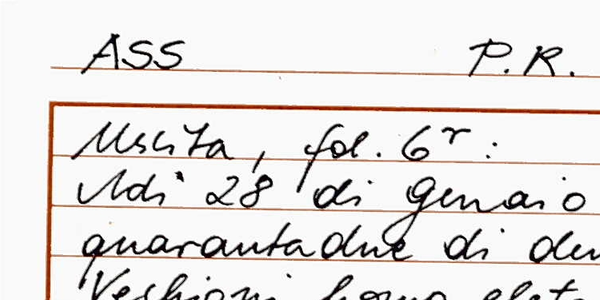 ASS P.R.
Uscita, fol. 6r:
Adi 28 di Genaio
quarantadue di
Vechioni homo